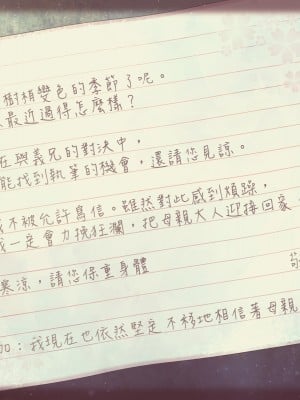 樹梢變色的季節了呢。
最近過得怎麼樣？
在與義兄的對決中，
能找到執筆的機會，還請您見諒。
不被允許寫信。雖然對此感到煩躁，
我一定會力挽狂瀾，把母親大人迎接回家
寒涼，請您保重身體
加：我現在也依然堅定不移地相信著母親